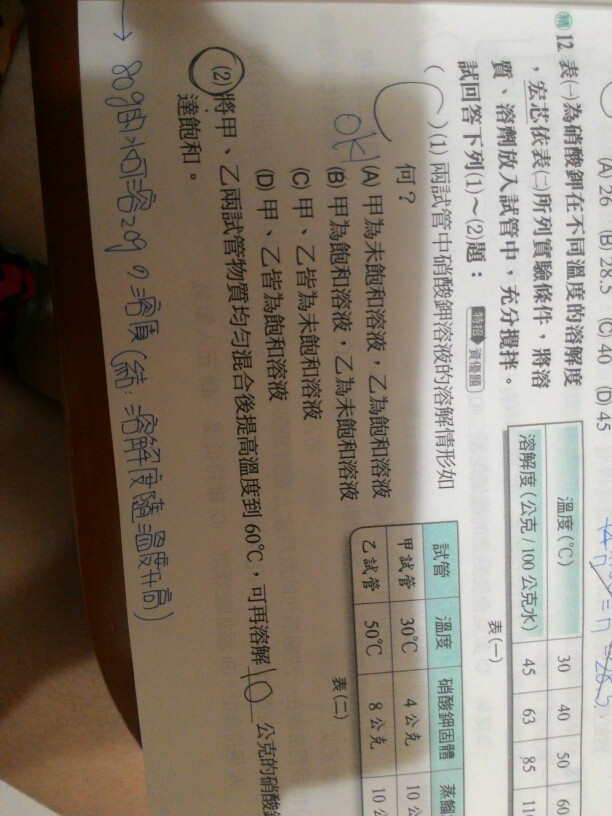 (A) 26 (B) 28.5 (C) 40 (D) 45
精 12. 表㈠為硝酸鉀在不同溫度的溶解度
，宏芯依表㈡所列實驗條件，將溶
質、溶劑放入試管中，充分攪拌。
試回答下列(1)～(2)題： 特招 資優題
( )(1) 兩試管中硝酸鉀溶液的溶解情形如
何？
(A) 甲為未飽和溶液，乙為飽和溶液
(B) 甲為飽和溶液，乙為未飽和溶液
(C) 甲、乙皆為未飽和溶液
(D) 甲、乙皆為飽和溶液
ok!
(2) 將甲、乙兩試管物質均勻混合後提高溫度到 60℃，可再溶解 10 公克的硝酸
達飽和。
溫度(℃) 30 40 50 60
溶解度(公克/100公克水) 45 63 85
表(一)
試管 溫度 硝酸鉀固體 蒸餾
甲試管 30℃ 4 公克 10
乙試管 50℃ 8 公克 10
表(二)